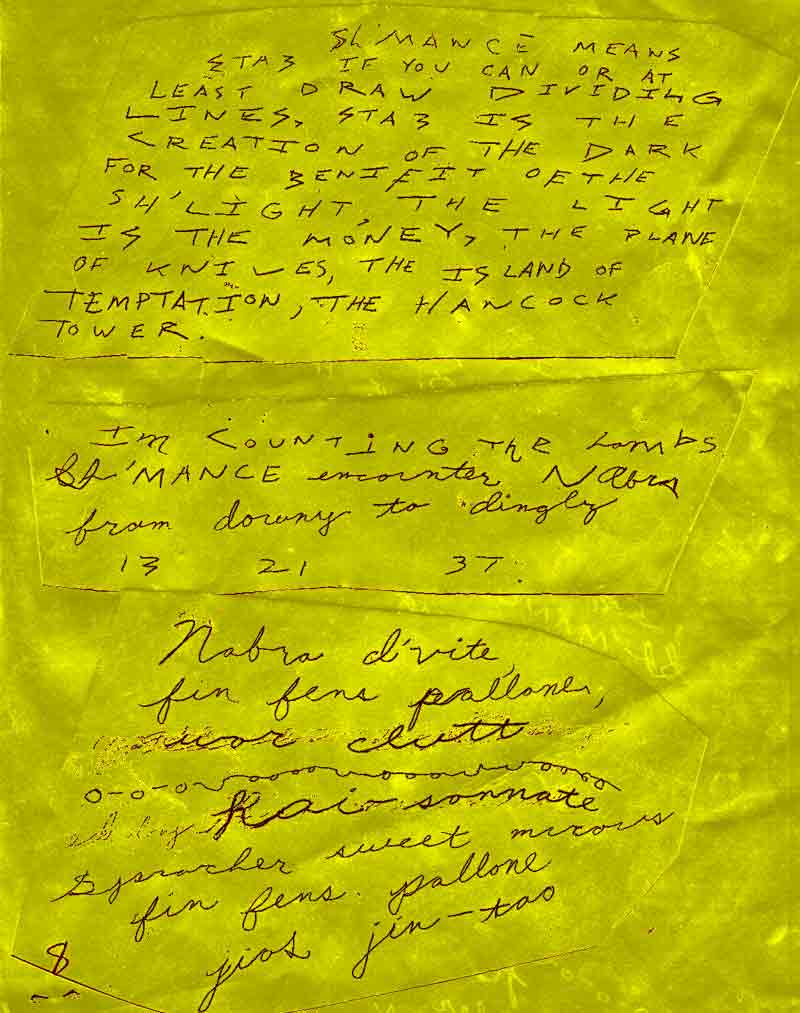 Sh'MANCE MEANS
STAB IF YOU CAN OR AT
LEAST DRAW DIVIDING
LINES, STAB IS THE
CREATION OF THE DARK
FOR THE BENIFIT OF THE
SH'LIGHT, THE LIGHT
IS THE MONEY, THE PLANE
OF KNIVES, THE ISLAND OF
TEMPTATION, THE HANCOCK
TOWER.
Im COUNTING THE Lambs
Sh'MANCE encounter Nabra
from downy to dingly
13 21 37.
Nabra d'vite,
fin fens pallone,
clutt
Kai-sonnate
sweet
fin fens. pallone
jios jin-tao
8